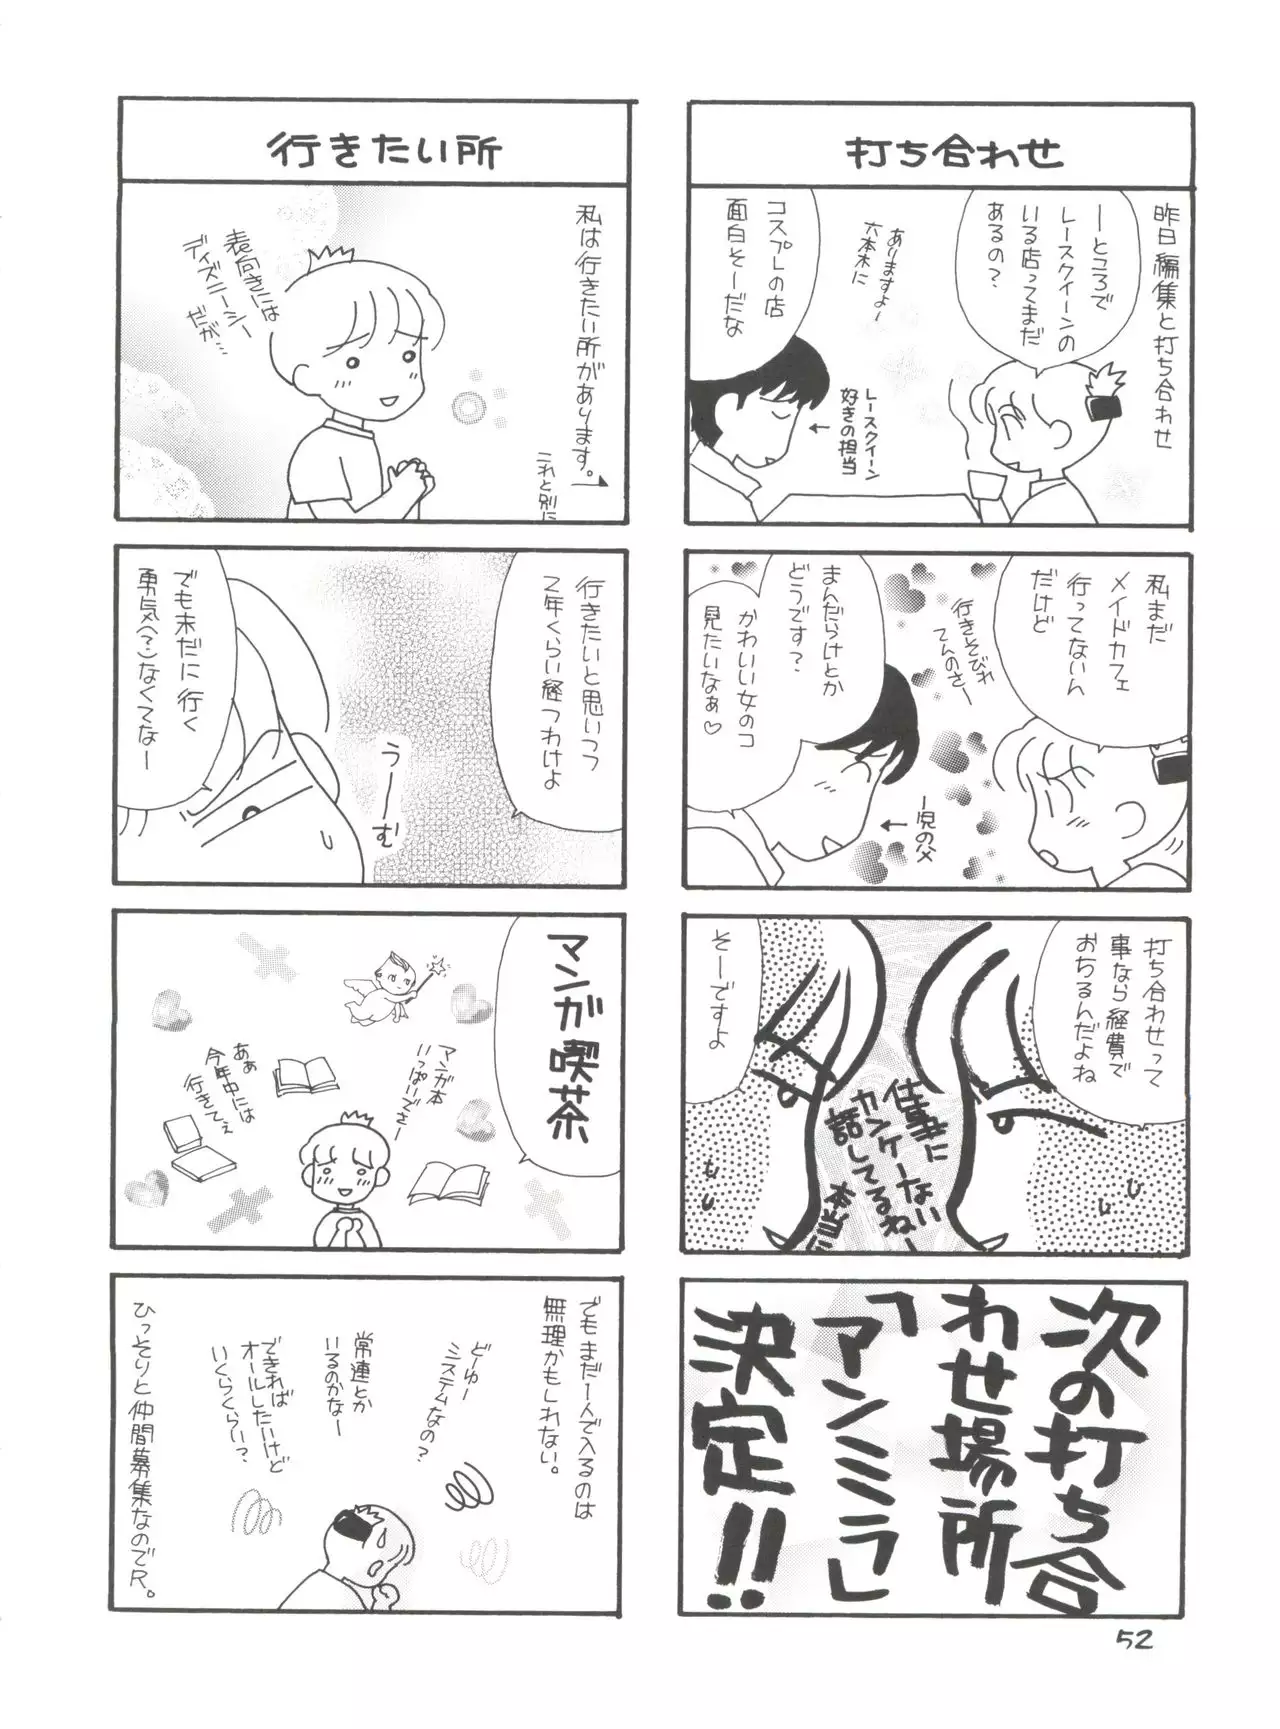 打ち合わせ
昨日編集と打ち合わせ
ーところで
レースクイーンの
いる店ってまだ
あるの?
ありますよー
六本木に
コスプレの店
面白そーだな
レースクイーン
好きの担当
私まだ
メイドカフェ
行ってないん
だけど
行きそびれ
てんのさー
まんだらけとか
どうです?
かわいい女のコ
見たいなぁ♡
一児の父
打ち合わせって
事なら経費で
おちるんだよね
そーですよ
仕事に
カンケーない
話してるねー
本当に
次の打ち合
わせ場所
「アンミラ」
決定!!
行きたい所
私は行きたい所があります。
これと別に
表向きには
ディズニーシー
だが…
行きたいと思いつつ
2年くらい経つわけよ
うーーむ
でも未だに行く
勇気(?)なくてなー
マンガ喫茶
マンガ本
いっぱいでさー
あぁ
今年中には
行きてぇ
でもまだ一人で入るのは
無理かもしれない。
どーゆー
システムなの?
常連とか
いるのかなー
できれば
オールしたいけど
いくらくらい?
ひっそりと仲間募集なのでR。
52